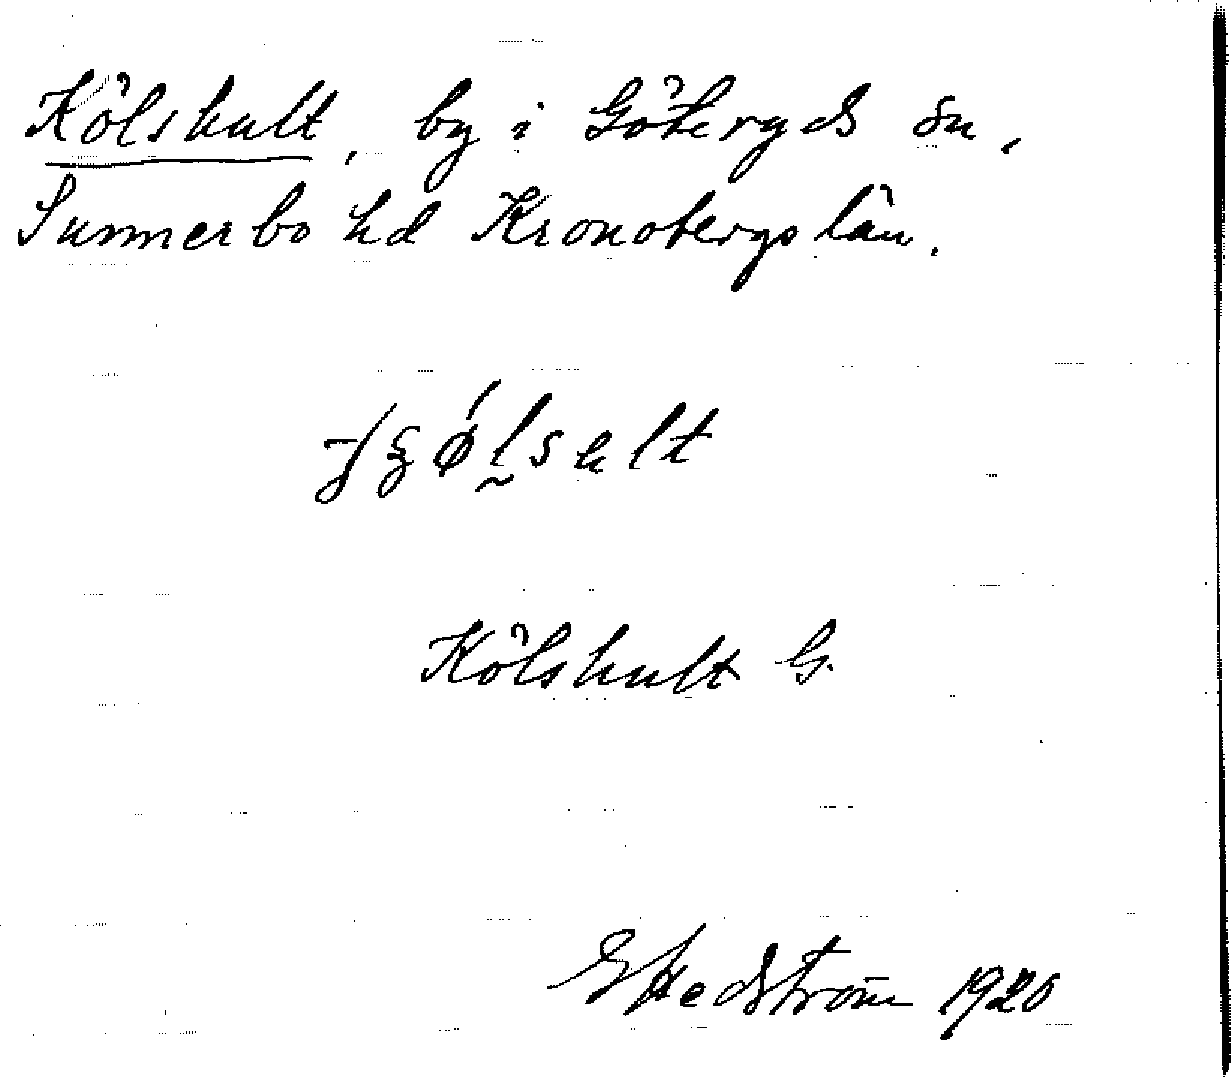 Kölshult, by i Göteryds sn,
Sunnerbo hd Kronobergs län.
Kölshult G.
G Hedström 1920